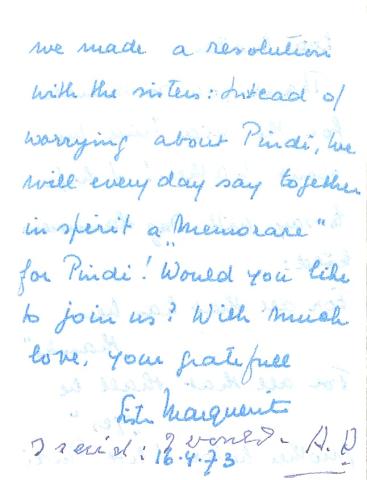 we made a resolution
with the sisters: Instead of
worrying about Pindi, we
will every day say together
in spirit a "Memorare"
for Pindi! Would you like
to join us? With much
love, your gratefull
Sister Marguerite
I said: I would - A.D
16.4.73